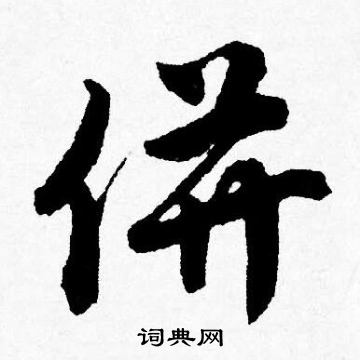 併
词典网